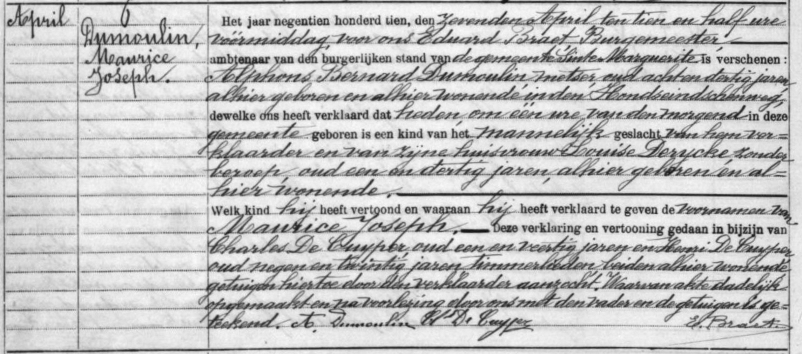 April
Dumoulin,
Maurice
Joseph.
Het jaar negentien honderd tien, den zevenden April ten tien en half ure
vóórmiddag, voor ons Eduard Braet Burgemeester
ambtenaar van den burgerlijken stand van de gemeente Sinte Marguerite is verschenen :
Alphons Bernard Dumoulin metser oud acht en dertig jaren
alhier geboren en alhier wonende in den Hondseindschenweg,
dewelke ons heeft verklaard dat heden om één ure van den morgend in deze
gemeente geboren is een kind van het mannelijk geslacht van hem ver=
klaarder en van zijne huisvrouw Louise Derycke zonder
beroep, oud een en dertig jaren, alhier geboren en al=
hier wonende.
Welk kind hij heeft vertoond en waaraan hij heeft verklaard te geven de voornamen van
Maurice Joseph. Deze verklaring en vertooning gedaan in bijzijn van
Charles De Cuyper, oud een en veertig jaren en Henri De Cuyper
oud negen en twintig jaren timmerlieden beiden alhier wonende
getuigen hiertoe door den verklaarder aanzocht. Waarvan akte dadelijk
opgemaakt en na voorlezing door ons met den vader en de getuigen is ge=
teekend. A. Dumoulin De Cuyper E. Braet.